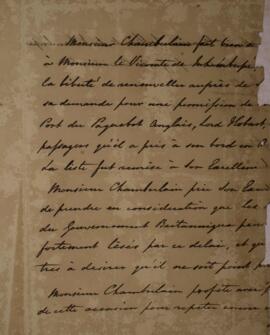 Monsieur Chamberlain fait bien
à Monsieur le Vicomte de Inhambupe
la liberté de renouveller auprès de
sa demande pour une permission de
Port du Paquebot Anglais, Lord Hobart,
passagers qu'il a pris à son bord en
La liste fut remise à Son Excellen
Monsieur Chamberlain prie Son Exc
de prendre en considération que les
du Gouvernement Britannique peu
fortement lésés par ce délai, et qu
très à désirer qu'il ne soit point
Monsieur Chamberlain profite avec
de cette occasion pour répéter